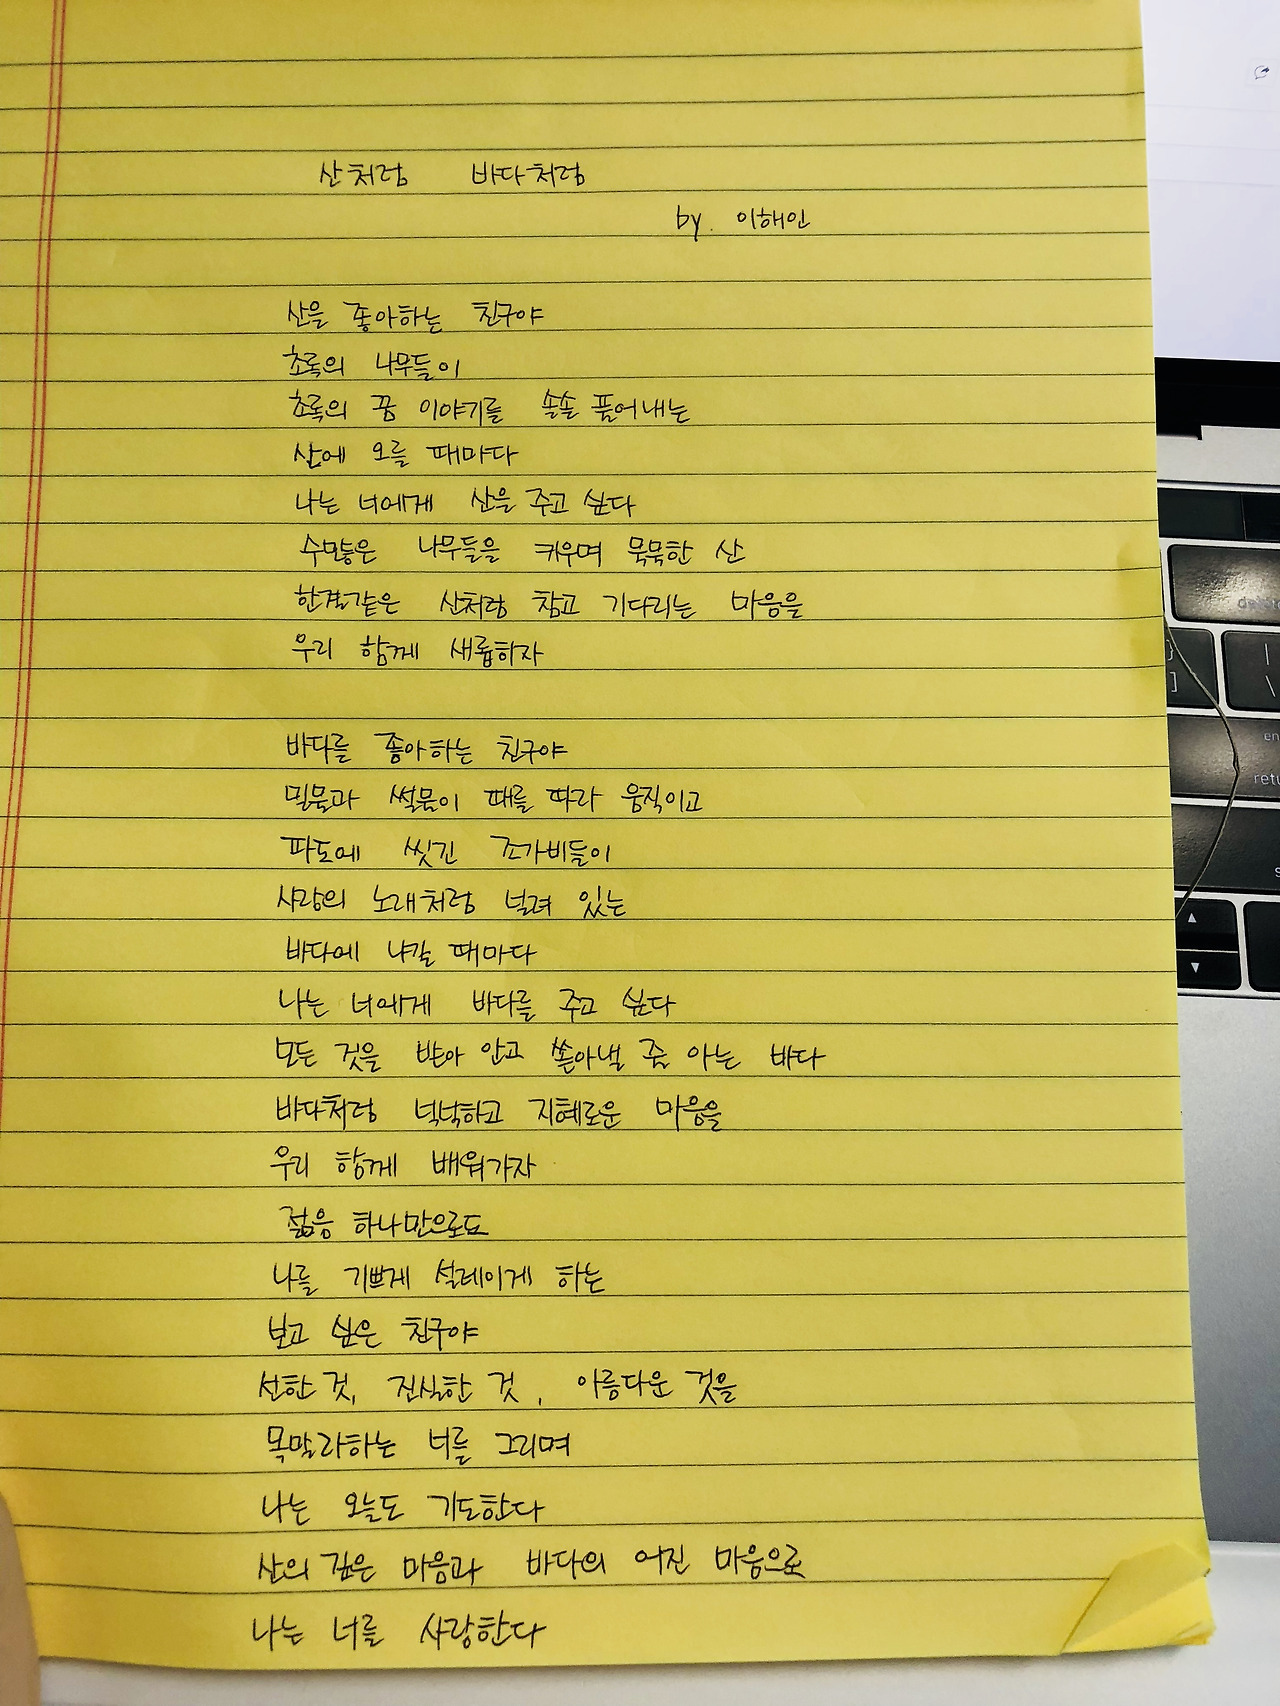 산처럼 바다처럼
by. 이해인
산을 좋아하는 친구야
초록의 나무들이
초록의 꿈 이야기를 솔솔 풀어내는
산에 오를 때마다
나는 너에게 산을 주고 싶다
수많은 나무들을 키우며 묵묵한 산
한결같은 산처럼 참고 기다리는 마음을
우리 함께 새롭하자
바다를 좋아하는 친구야
밀물과 썰물이 때를 따라 움직이고
파도에 씻긴 조가비들이
사랑의 노래처럼 널려 있는
바다에 나갈 때마다
나는 너에게 바다를 주고 싶다
모든 것을 받아 안고 쏟아낼 줄 아는 바다
바다처럼 넉넉하고 지혜로운 마음을
우리 함께 배워가자
젊음 하나만으로도
나를 기쁘게 설레이게 하는
보고 싶은 친구야
선한 것, 진실한 것, 아름다운 것을
목말라하는 너를 그리며
나는 오늘도 기도한다
산의 깊은 마음과 바다의 어진 마음으로
나는 너를 사랑한다